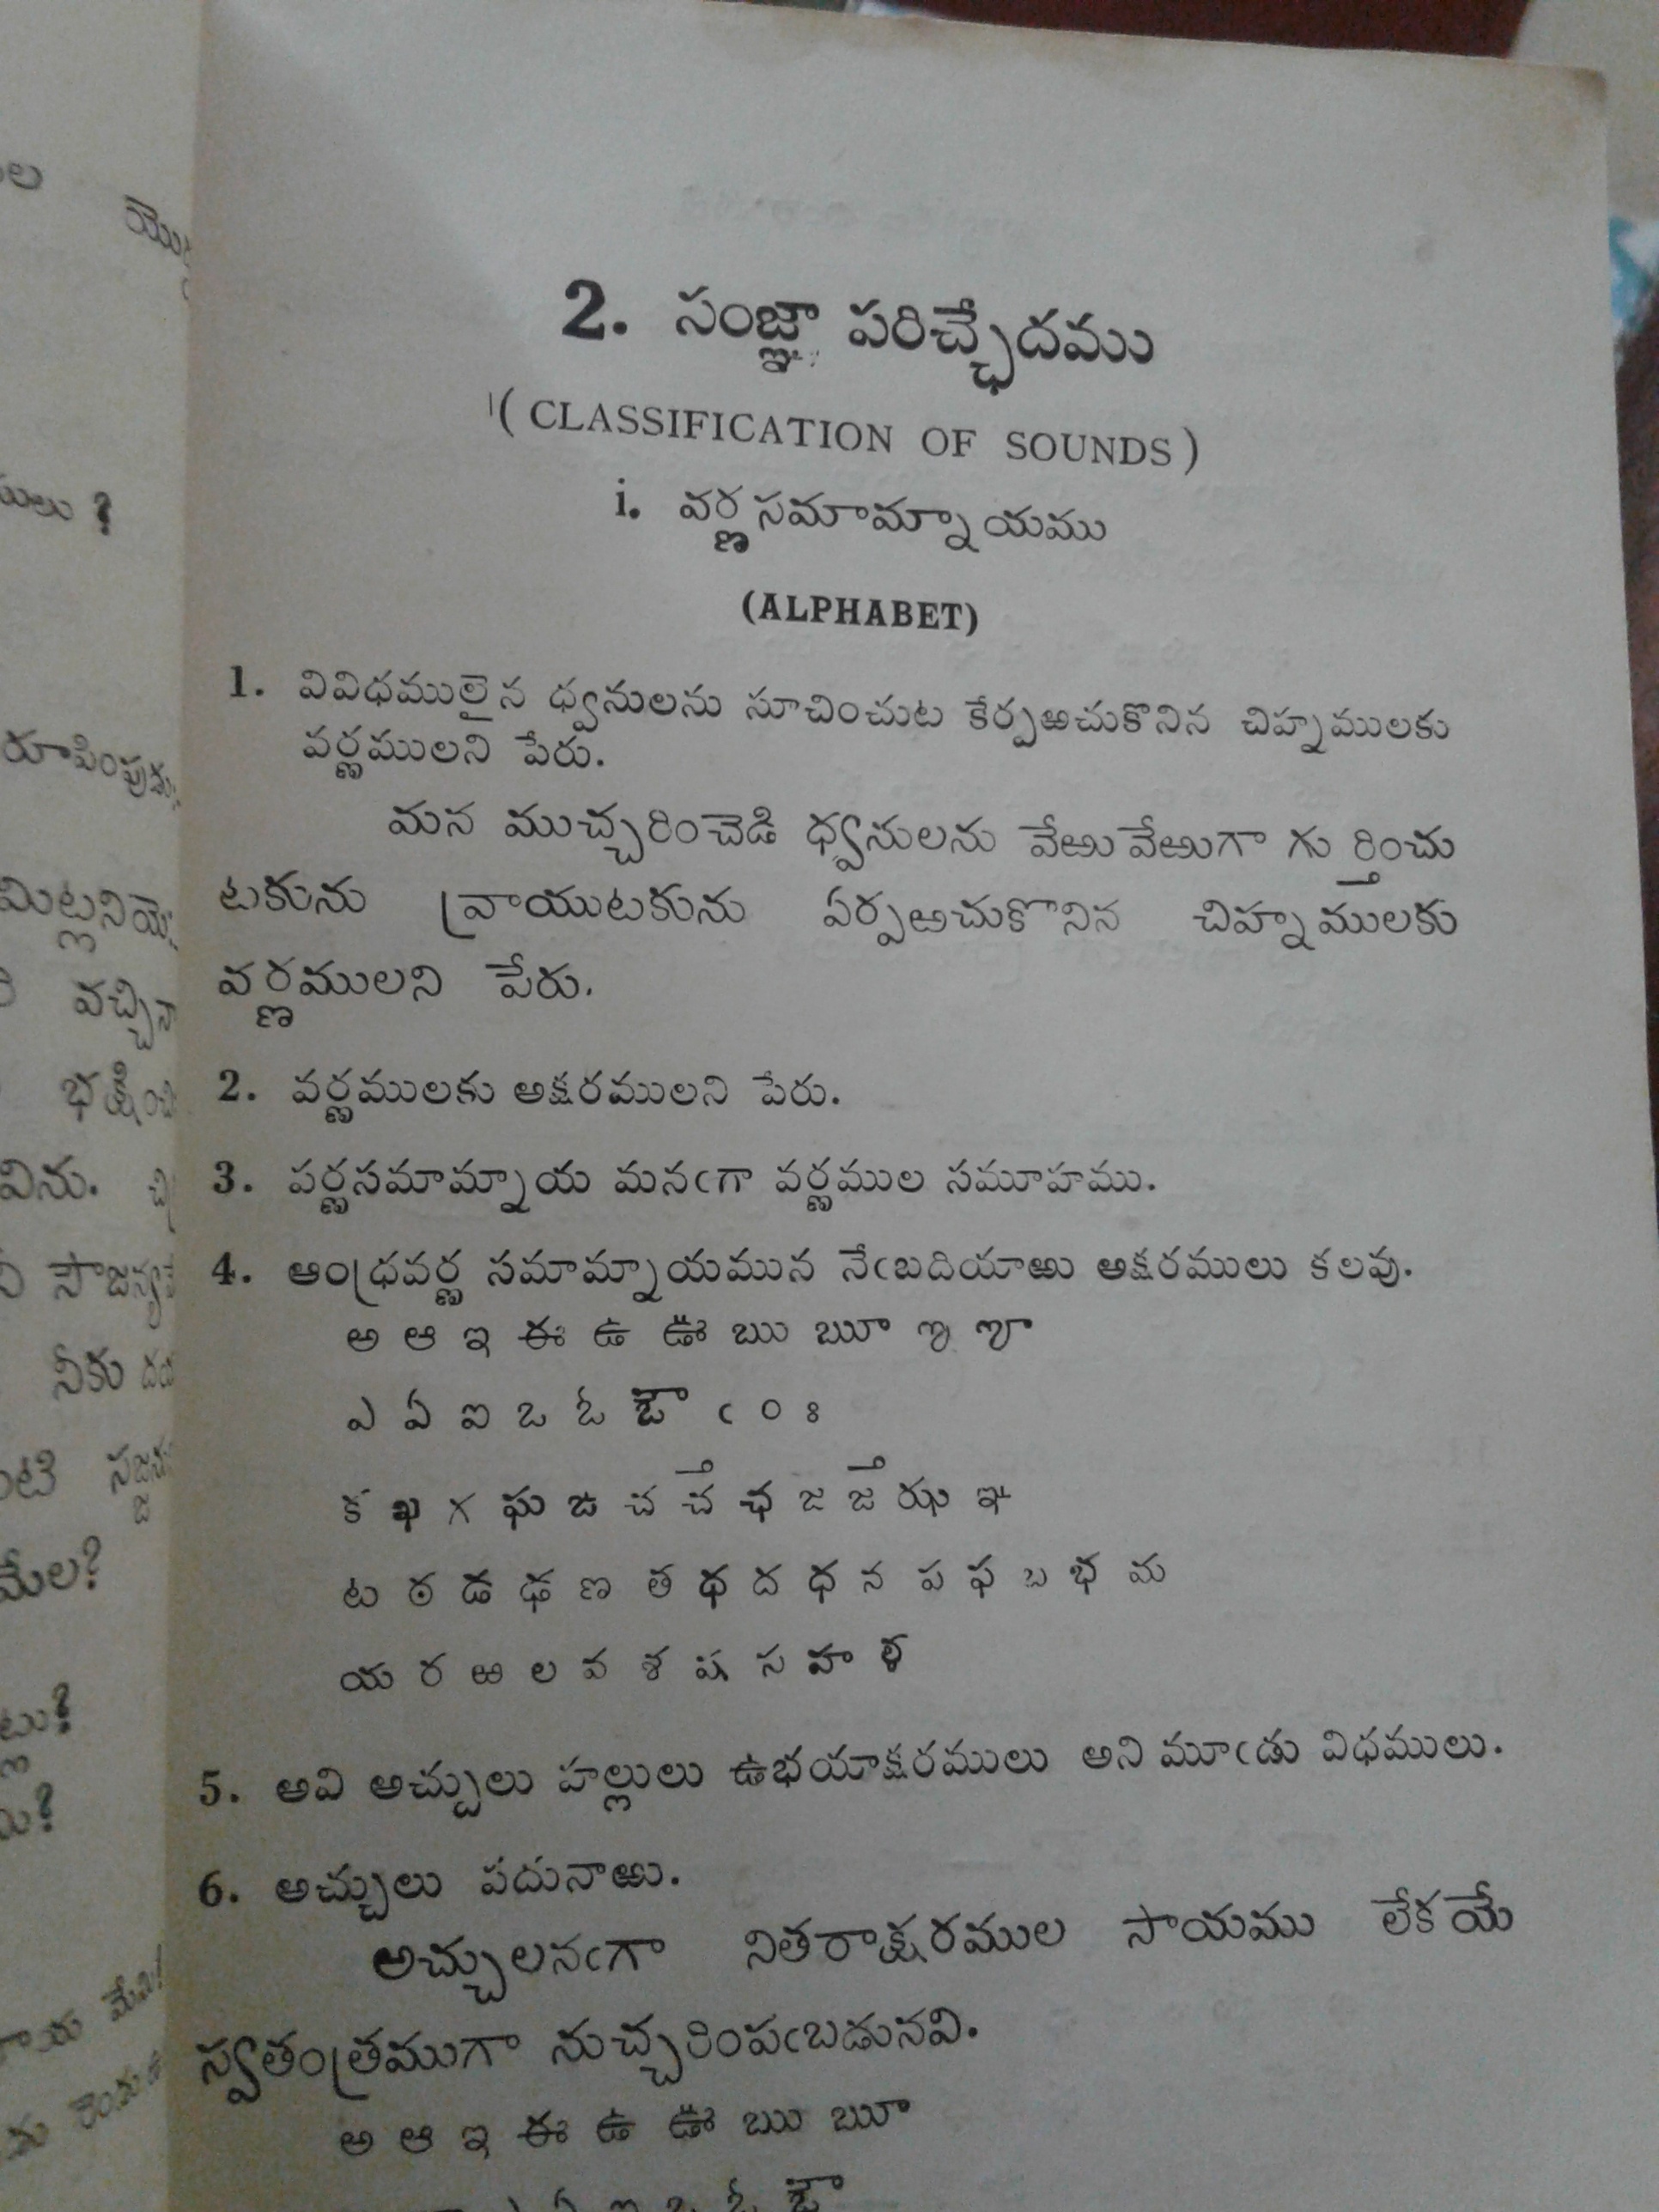 2. సంజ్ఞా పరిచ్ఛేదము
(CLASSIFICATION OF SOUNDS)
i. వర్ణసమామ్నాయము
(ALPHABET)
1. వివిధములైన ధ్వనులను సూచించుట కేర్పఱచుకొనిన చిహ్నములకు
వర్ణములని పేరు.
మన ముచ్చరించెడి ధ్వనులను వేఱువేఱుగా గుర్తించు
టకును వ్రాయుటకును ఏర్పఱచుకొనిన చిహ్నములకు
వర్ణములని పేరు.
2. వర్ణములకు అక్షరములని పేరు.
3. పర్ణసమామ్నాయ మనఁగా వర్ణముల సమూహము.
4. ఆంధ్రవర్ణ సమామ్నాయమున నేఁబదియాఱు అక్షరములు కలవు.
అ ఆ ఇ ఈ ఉ ఊ ఋ ౠ ఌ ౡ
ఎ ఏ ఐ ఒ ఓ ఔ ఁ ం ః
క ఖ గ ఘ ఙ చ ౘ ఛ జ ౙ ఝ ఞ
ట ఠ డ ఢ ణ త థ ద ధ న ప ఫ బ భ మ
య ర ఱ ల వ శ ష స హ ళ
5. అవి అచ్చులు హల్లులు ఉభయాక్షరములు అని మూఁడు విధములు.
6. అచ్చులు పదునాఱు.
అచ్చులనఁగా నితరాక్షరముల సాయము లేకయే
స్వతంత్రముగా నుచ్చరింపఁబడునవి.
అ ఆ ఇ ఈ ఉ ఊ ఋ ౠ
ఎ ఏ ఐ ఒ ఓ ఔ